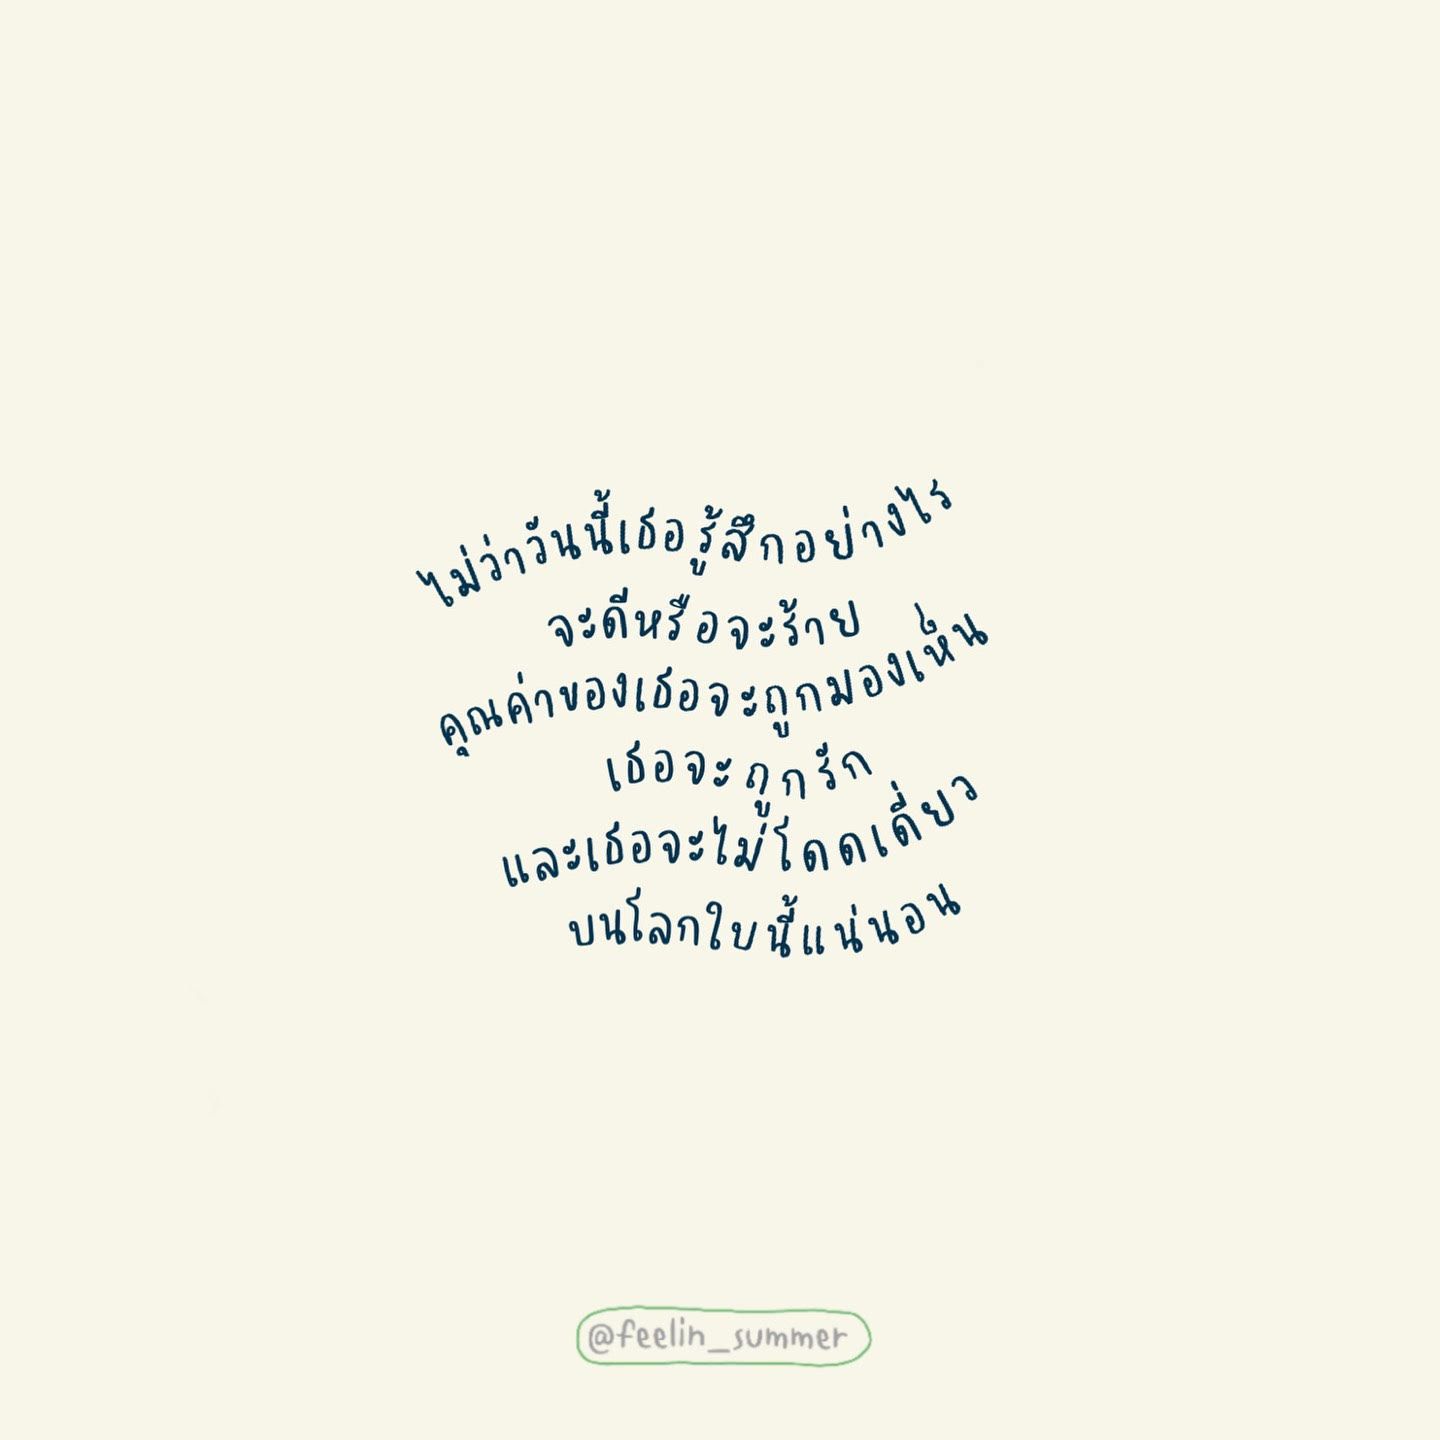 ไม่ว่าวันนี้เธอรู้สึกอย่างไร
จะดีหรือจะร้าย
คุณค่าของเธอจะถูกมองเห็น
เธอจะถูกรัก
และเธอจะไม่โดดเดี่ยว
บนโลกใบนี้แน่นอน
@feelin_summer